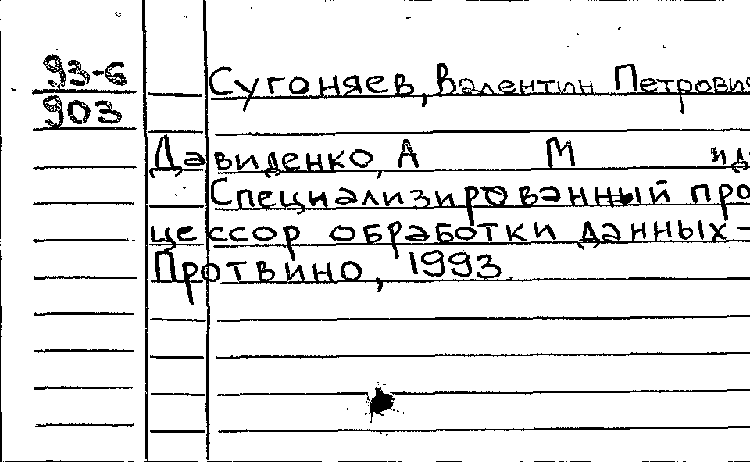 93-6
903
Сугоняев, Валентин Петрови
Давиденко, А М и д
Специализированный про
цессор обработки данных-
Протвино, 1993.